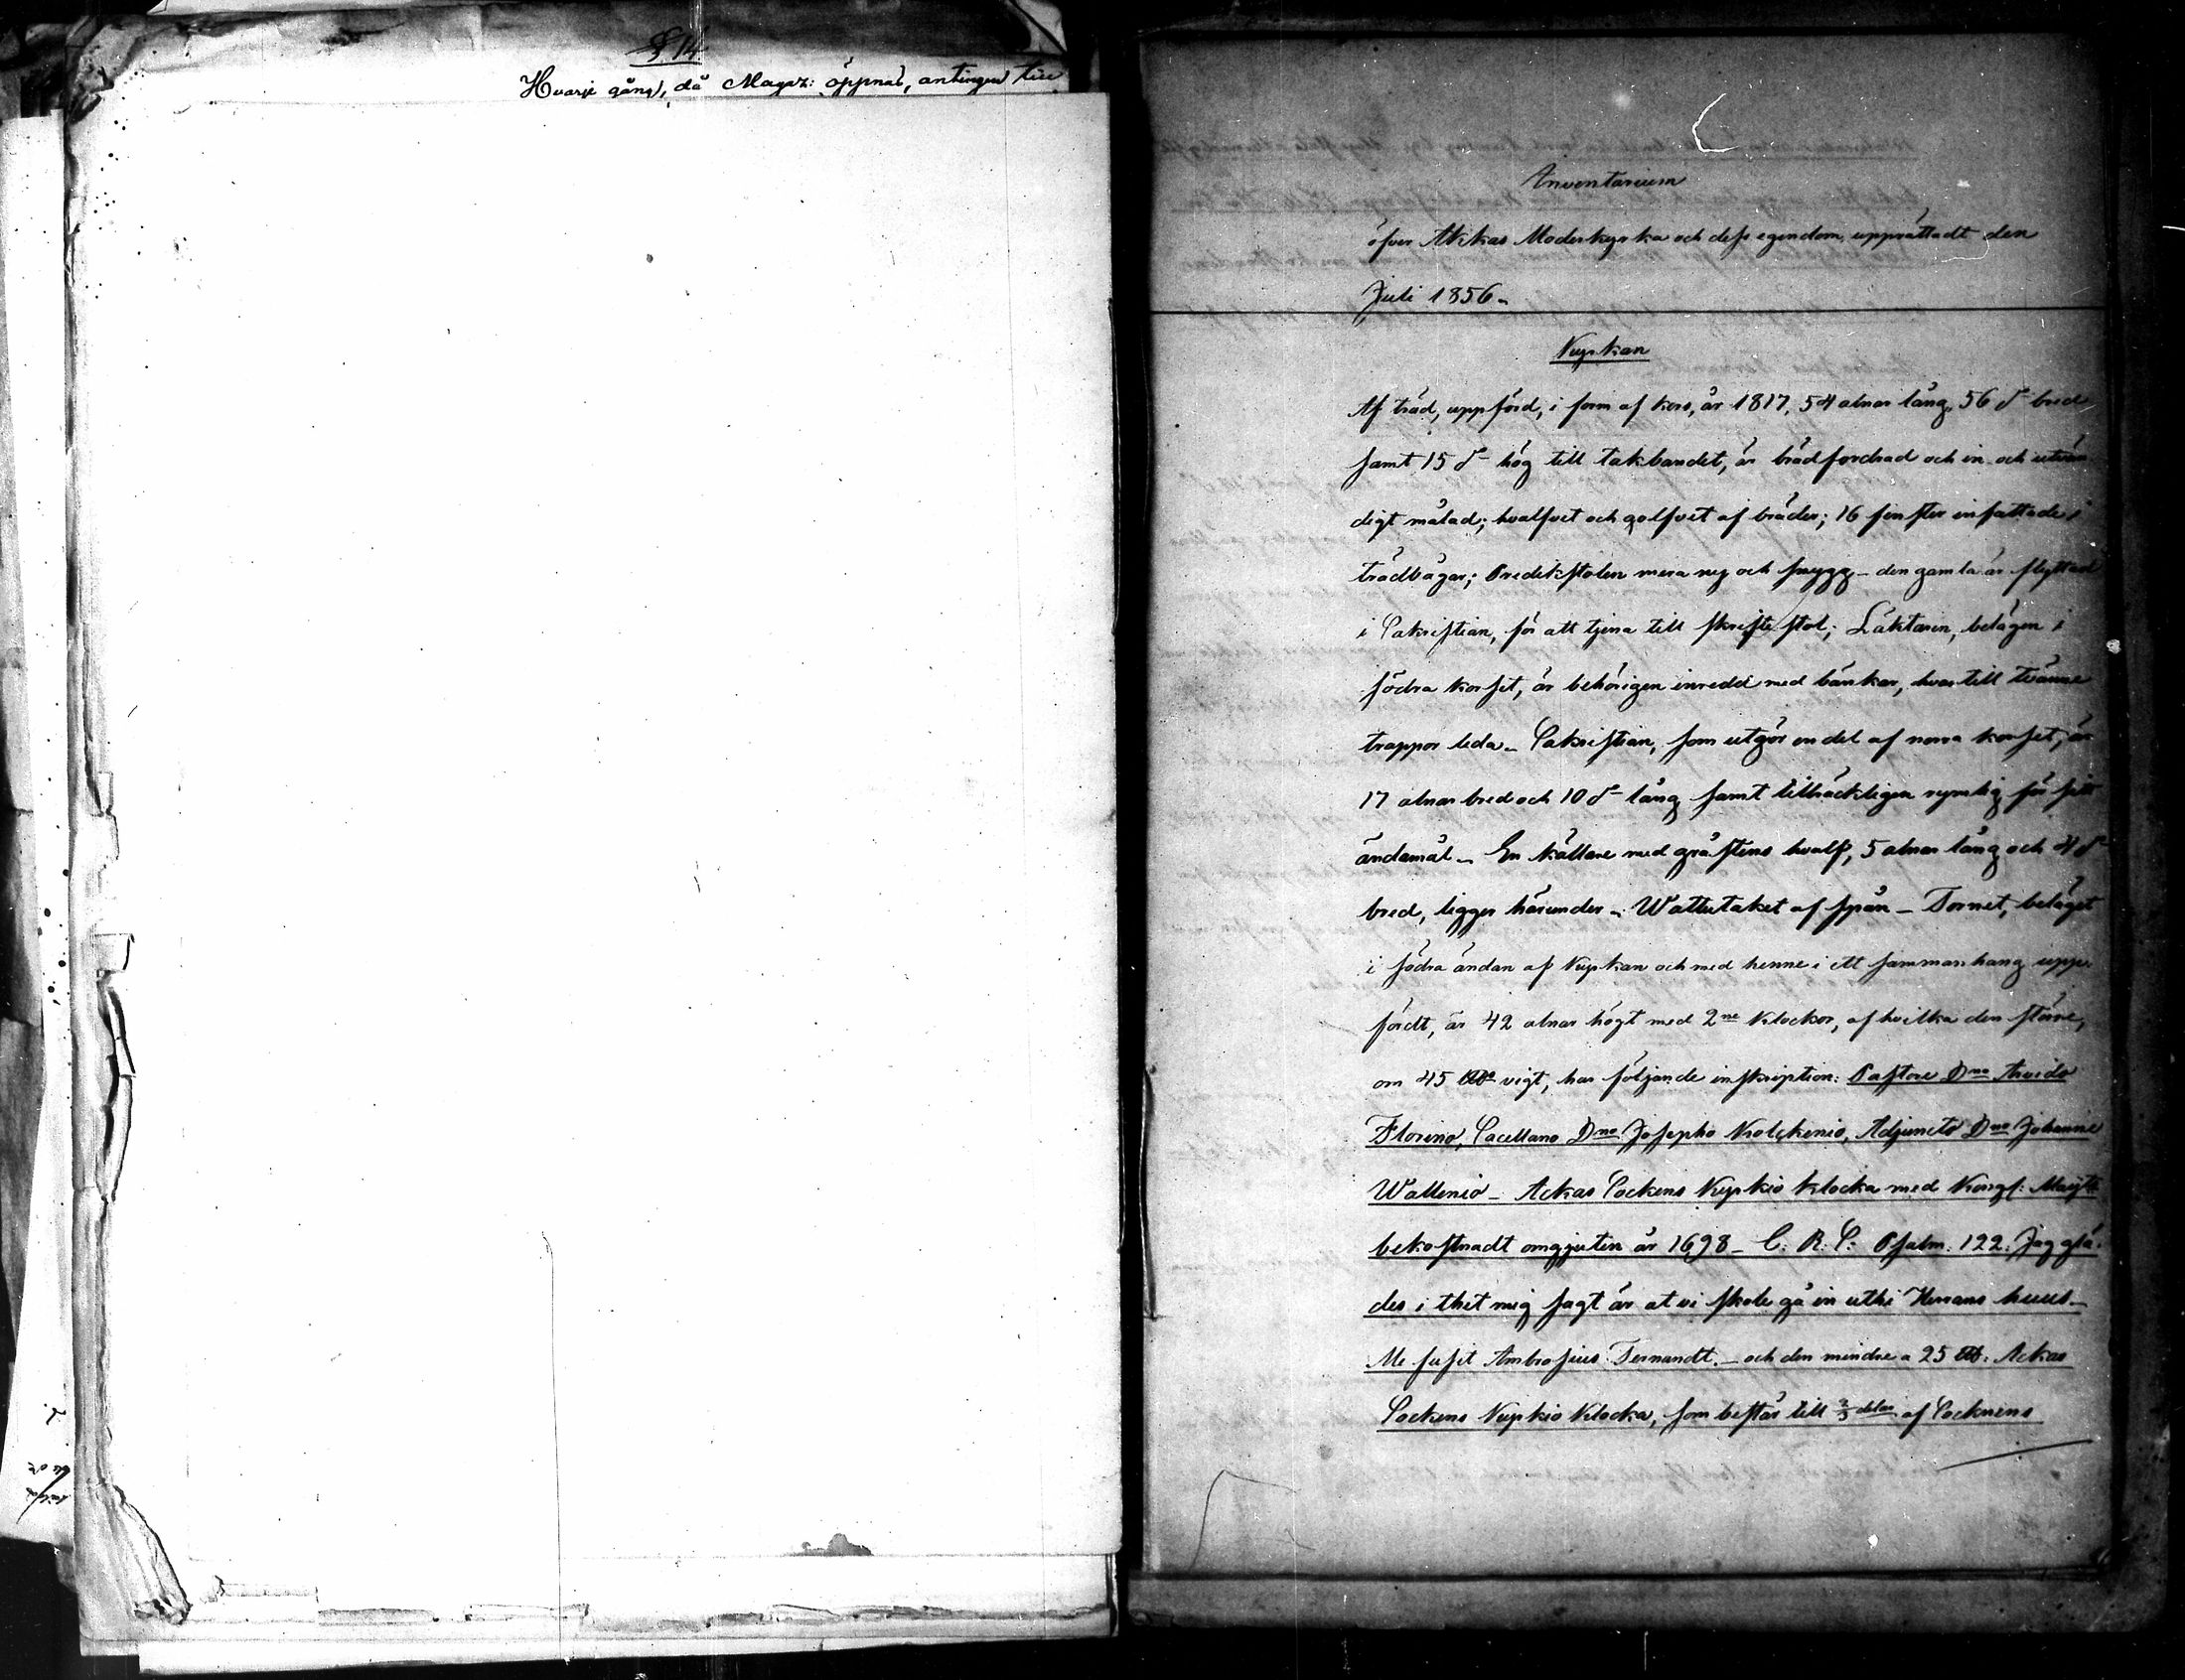 § 14
Hvarje gång, då Magaz: öppnas, antingen till
Inventarium
öfver Akkas Moderkyrka och dess egendom, upprättadt den
Juli 1856.
Kyrkan
Af träd, uppförd, i form af kors, år 1817, 54 alnar lång, 56 d:o bred
samt 15 d:o hög till takbandet, är brädfordrad och in- och utvän-
digt målad; hvalfvet och golfvet af bräder; 16 fenster infattade i
trädbågar; Predikstolen mera ny och snygg - den gamla är flyttad
i Sakristian, för att tjena till skriftestol; Läktaren, belägen i
södra korset, är behörigen inredd med bänkar, hvartill tvänne
trappor leda. Sakristian, som utgör en del af norra korset, är
17 alnar bred och 10 d:o lång samt tillräckligen rymlig för sitt
ändamål. En källare med gråstens hvalf, 5 alnar lång och 4 d:o
bred, ligger härunder. Wattutaket af spån - Tornet, beläget
i södra ändan af Kyrkan och med henne i ett sammanhang upp-
fördt, är 42 alnar högt med 2ne klockor, af hvilka den större,
om 45 vigt, har följande inskription: Pastore Dno Arvido
Florino, Sacellano Dno Josepho Krolckenio, Adjuncto Dno Johanne
Wallenio - Ackas Sockens Kyrkio Klocka med Kongl: Maijts
bekostnadt omgjuten år 1698 - C. R. S: Psalm. 122. Jag glä-
des i thet mig sagt är at vi skole gå in uthi Herrans huus -
Me fusit Ambrosius Fernandt. - och den mindre a 25 Ackas
Sockens Kyrkio Klocka, som består till 2/3 delar af Socknens